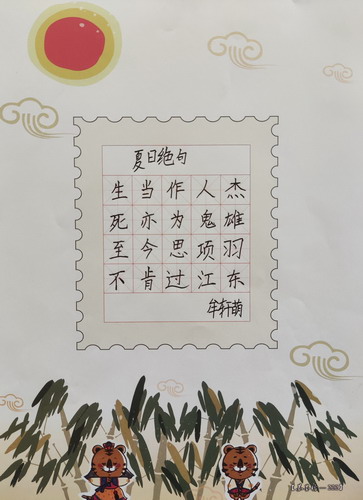 夏日绝句
生当作人杰
死亦为鬼雄
至今思项羽
不肯过江东
牟轩萌